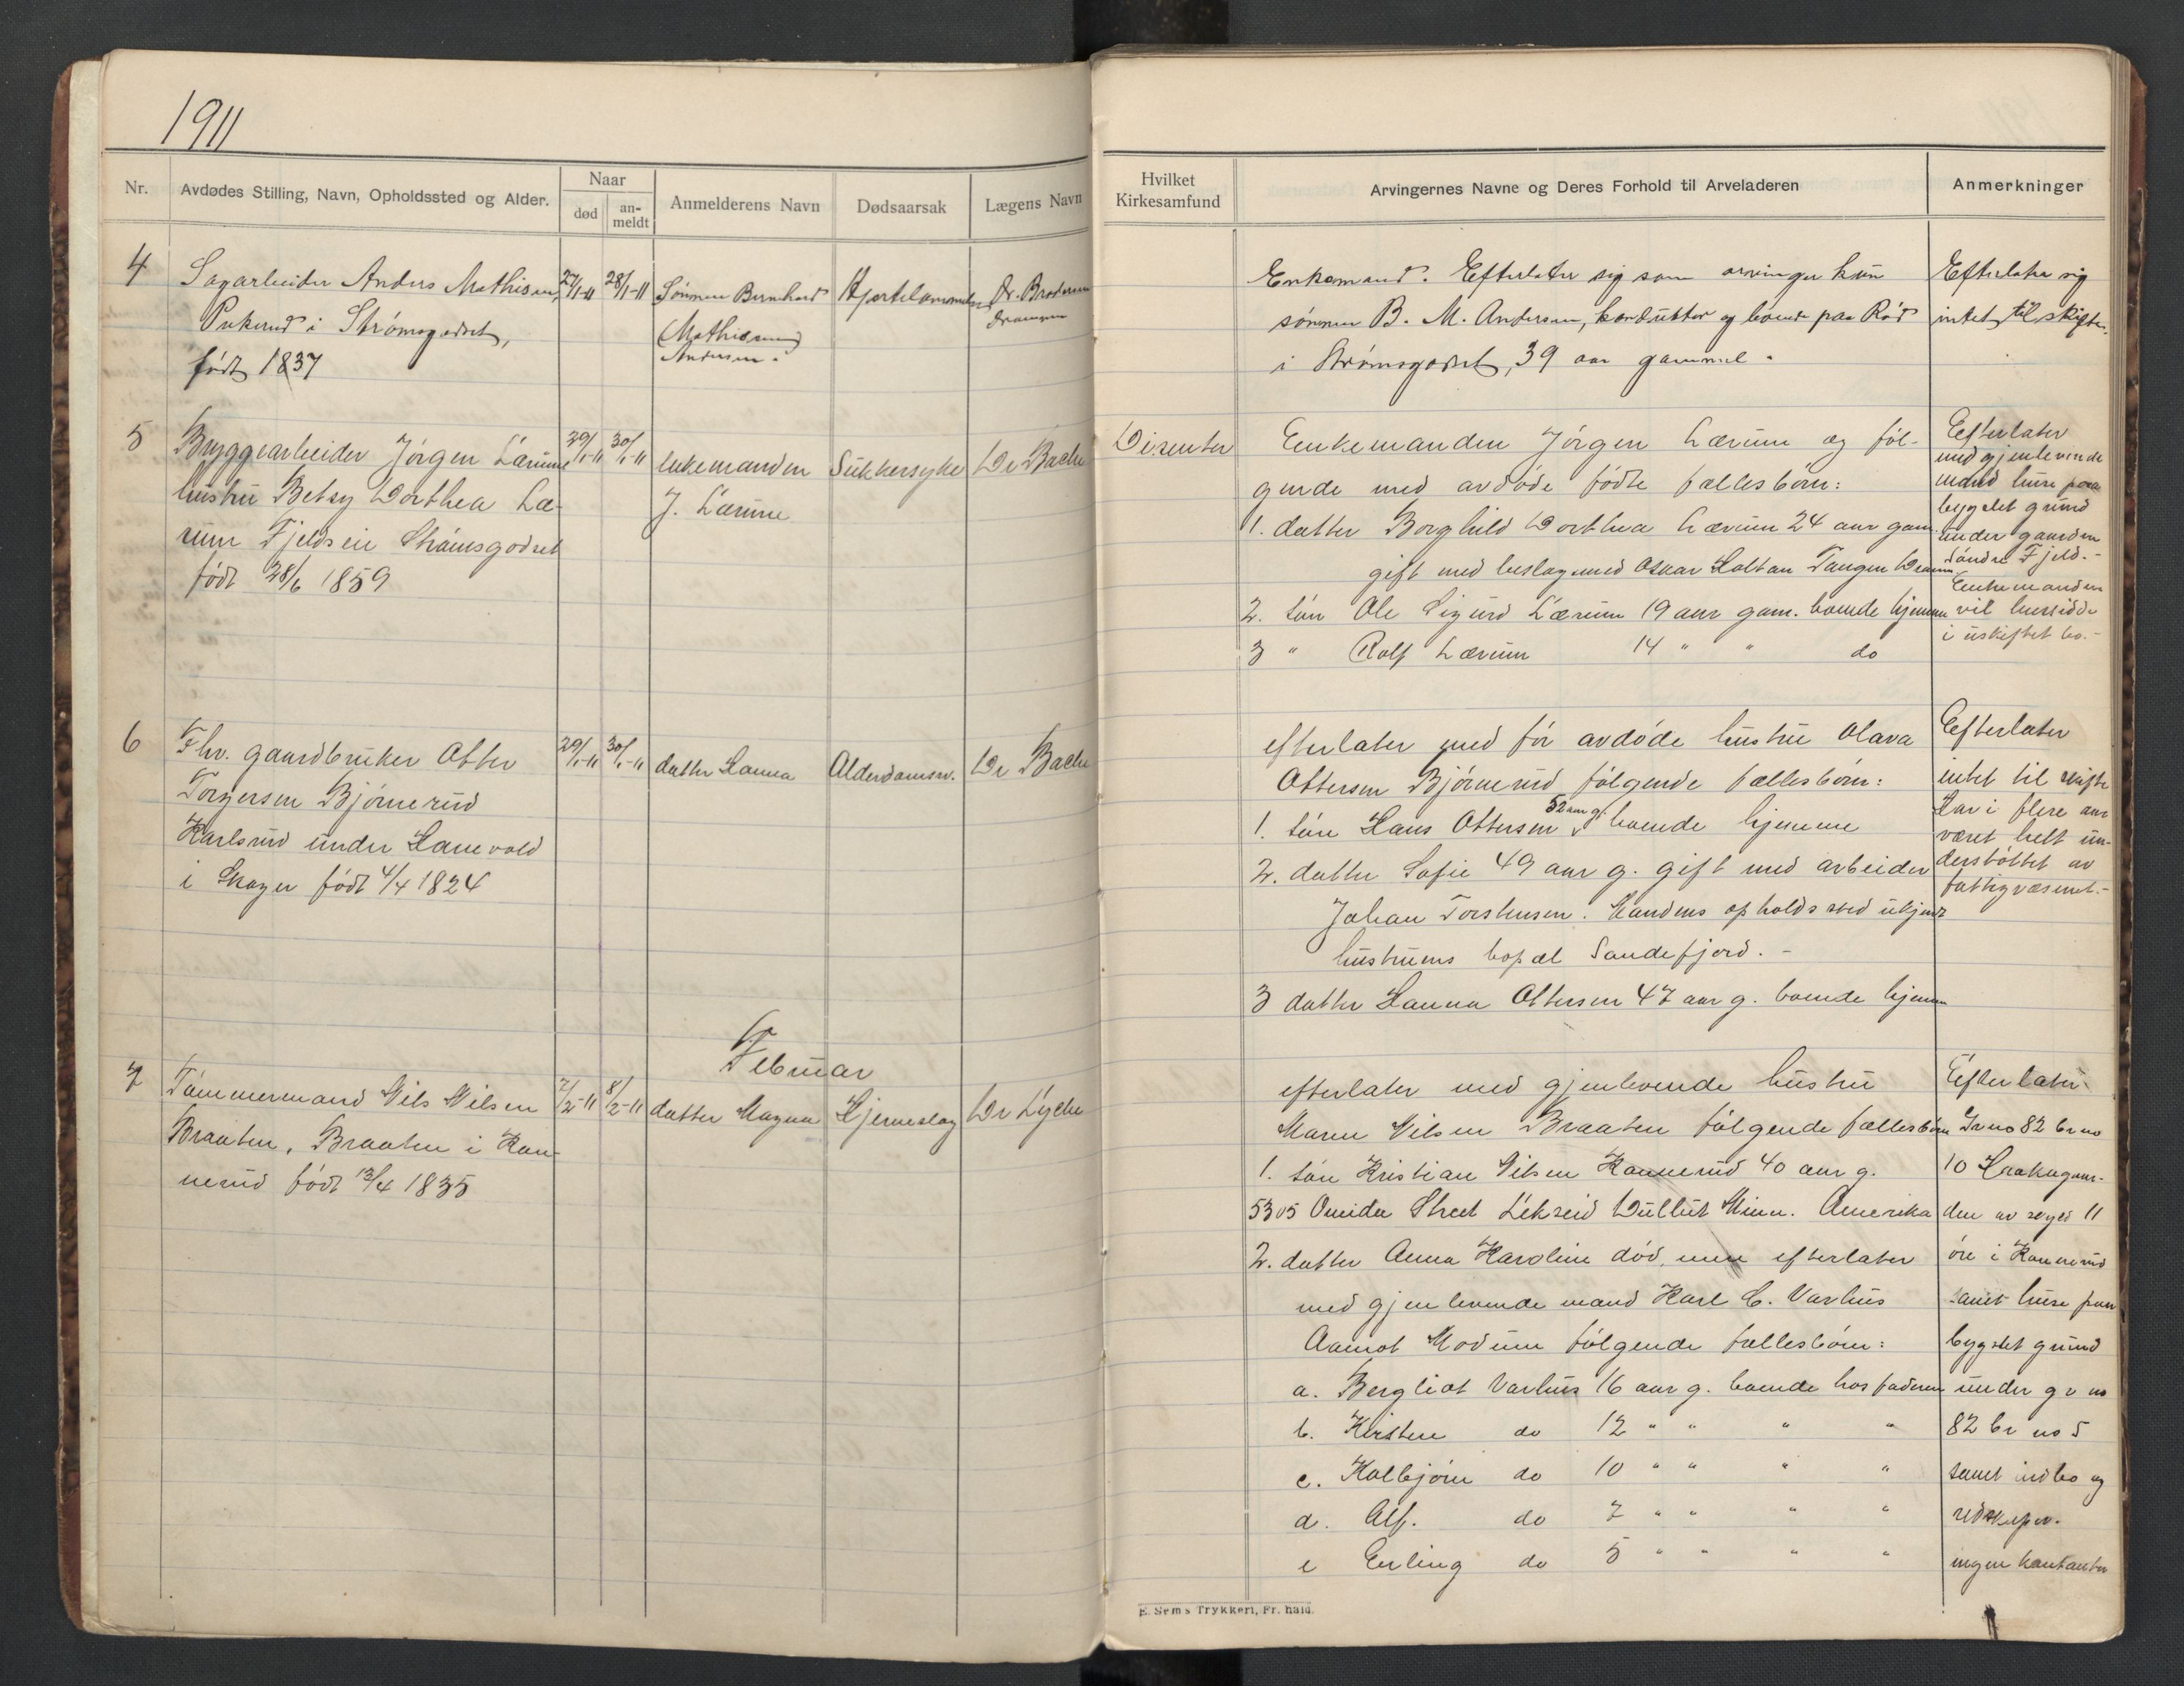 1911
Nr.
Avdødes Stilling, Navn, Opholdssted og Alder.
Naar
død
an-
meldt
Anmelderens Navn
Dødsaarsak
Lægens Navn
Hvilket
Kirkesamfund
Arvingernes Navne og Deres Forhold til Arveladeren
Anmerkninger
4
Sagarbeider Anders Mathisen,
Pukerud i Strømsgodset,
født 1837
27/1-11
28/1-11
Sønnen Bernhard
Mathias
Andersen.
Hjertelammelse
Dr.
Drammen
Enkemand. Efterlater sig som arvinger kun
sønnen B. M. Andersen, konduktør og boende paa Rød
i Strømsgodset, 39 aar gammel.
Efterlater sig
intet til skifte.
5
Bryggearbeider Jørgen Lærum
hustru Betsy Dorthea Læ-
rum Fjeldseie Strømsgodset
født 28/6 1859
29/1-11
30/1-11
enkemanden
J. Lærum
Sukkersyke
Dr Bache
Disenter
Enkemanden Jørgen Lærum og føl-
gende med avdøde fødte fællesbørn:
1. datter Borghild Dorthea Lærum 24 aar gam.
gift med beslagsmed Oskar Holtan Tangen Dramm
2. søn Ole Sigurd Lærum 19 aar gam. boende hjemme
3 " Rolf Lærum 14 " " do
Efterlater
med gjenlevende
mand huse paa
bygslet grund
under gaarden
Søndre Fjeld.-
Enkemanden
vil hensidde
i uskiftet bo.-
6
Fhv. gaardbruker Otter
Torgersen Bjørnerud
Karlsrud under Hanevold
i Skoger født 4/4 1824
29/1-11
30/1-11
datter Hanna
Alderdomssv.
Dr Bache
efterlater med før avdøde hustru Olava
Ottersen Bjørnerud følgende fællesbørn:
52 aar g.
1. søn Hans Ottersen boende hjemme
2. datter Sofie 49 aar g. gift med arbeider
Johan Torstensen. Mandens opholdssted ukjendt
hustruens bopæl Sandefjord.-
3 datter Hanna Ottersen 47 aar g. boende hjemme
Efterlater
intet til skifte
Har i flere aar
været helt un-
derstøttet av
fattigvæsenet.-
Februar
7
Tømmermand Nils Nilsen
Braaten, Braaten i Kon-
nerud født 13/4 1835
7/2-11
8/2-11
datter Magna
Hjerneslag
Dr Lyche
efterlater med gjenlevende hustru
Maren Nilsen Braaten følgende fællesbørn
1. søn Kristian Nilsen Konnerud 40 aar g.
5305 Oneida Street Lekseid Dullut Minn. Amerika
2. datter Anna Karoline død, men efterlater
med gjenlevende mand Karl C. Varhus
Aamot Modum følgende fællesbørn:
a. Bergliot Varhus 16 aar g. boende hos faderen
b. Kirsten do 12 " " " "
c. Kolbjørn do 10 " " " "
d. Alf. do 7 " " " "
e Erling do 5 " " " "
Efterlater
Gr no 82 br no
10
den av skyld 11
øre i Konnerud
samt huse paa
bygslet grund
under gr no
82 br no 5
samt indbo og
redskaper.
ingen kontanter
E. Sem's Trykkeri, Fr. hald.